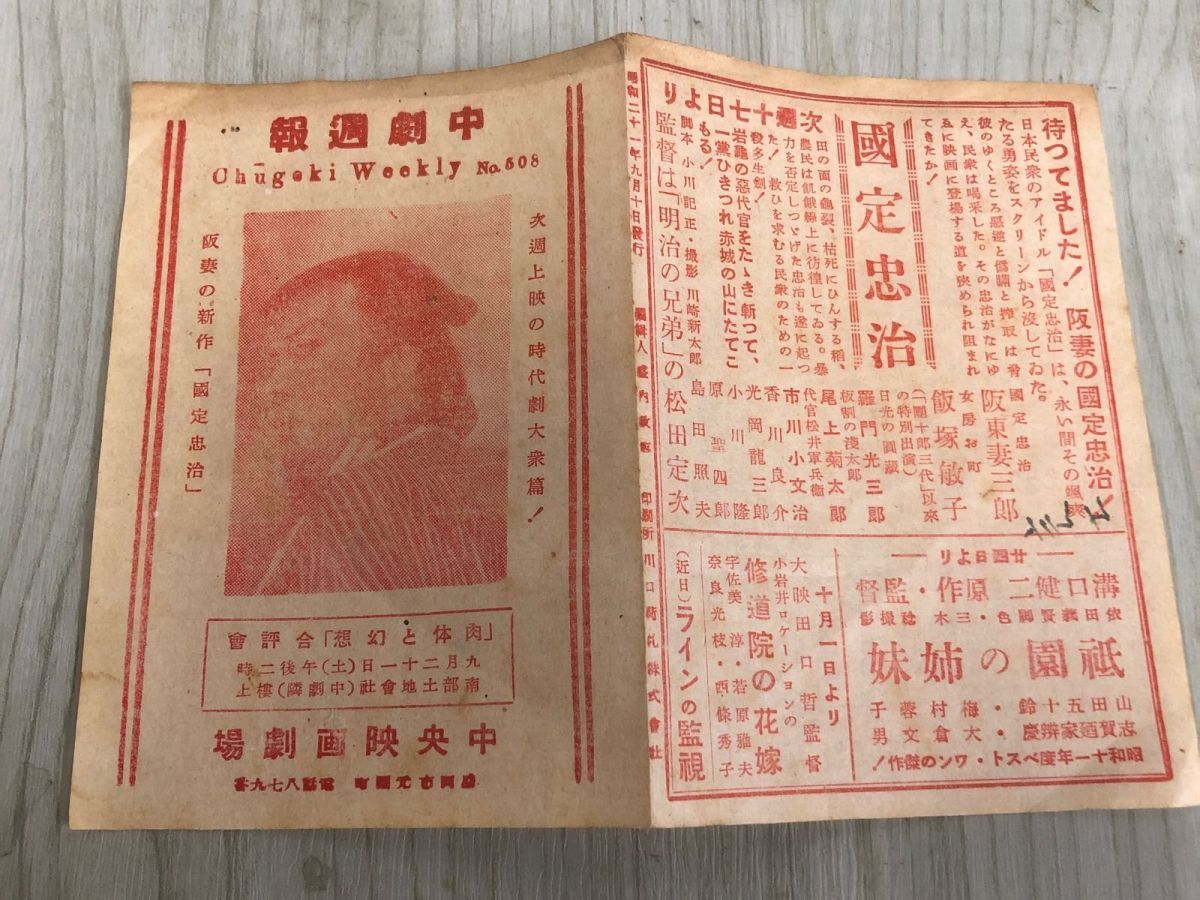 報週劇中
Chūgeki Weekly No.508
次週上映の時代劇大衆篇!
阪妻の新作「國定忠治」
會評合「想幻と体肉」
時二後午(土)日一十二月九
上樓(隣劇中)社會地土部南
場劇画映央中
昭和二十一年九月十日發行
編輯人
印刷所 川口
次週十七日より
待つてました! 阪妻の國定忠治!
日本民衆のアイドル「國定忠治」は、永い間その颯爽
たる勇姿をスクリーンから沒してゐた。
彼のゆくところ惡逆と僞瞞と搾取は脅
え、民衆は喝采した。その忠治がなにゆ
ゑに映画に登場する道を狹められ阻まれ
てきたか!
國定忠治
田の面の龜裂、枯死にひんする稻、
農民は飢餓線上に彷徨してゐる。暴
力を否定しつゞけた忠治も遂に起つ
た! 救ひを求むる民衆のための一
殺多生劍!
岩龜の惡代官をたゝき斬つて、
一黨ひきつれ赤城の山にたてこ
もる!
脚本 小川記正・撮影 川崎新太郎
監督は「明治の兄弟」の松田定次
國定忠治
阪東妻三郎
女房お町
飯塚敏子
(「團十郎三代」以來
の特別出演)
日光の圓藏
羅門光三郎
板割の淺太郎
尾上菊太郎
代官松井軍兵衛
市川小文治
香川良介
光岡龍三郎
小川隆
原聖四郎
島田照夫
廿四日より
督監・作原 二健口溝
依田義賢脚色・三木稔撮影
妹姉の園祇
山田五十鈴・梅村蓉子
志賀廼家辨慶・大倉文男
昭和十一年度ベスト・ワンの傑作!
十月一日より
大映田口哲監督
小岩井ロケーションの
修道院の花嫁
宇佐美淳・若原雅夫
奈良光枝・西條秀子
(近日)ラインの監視